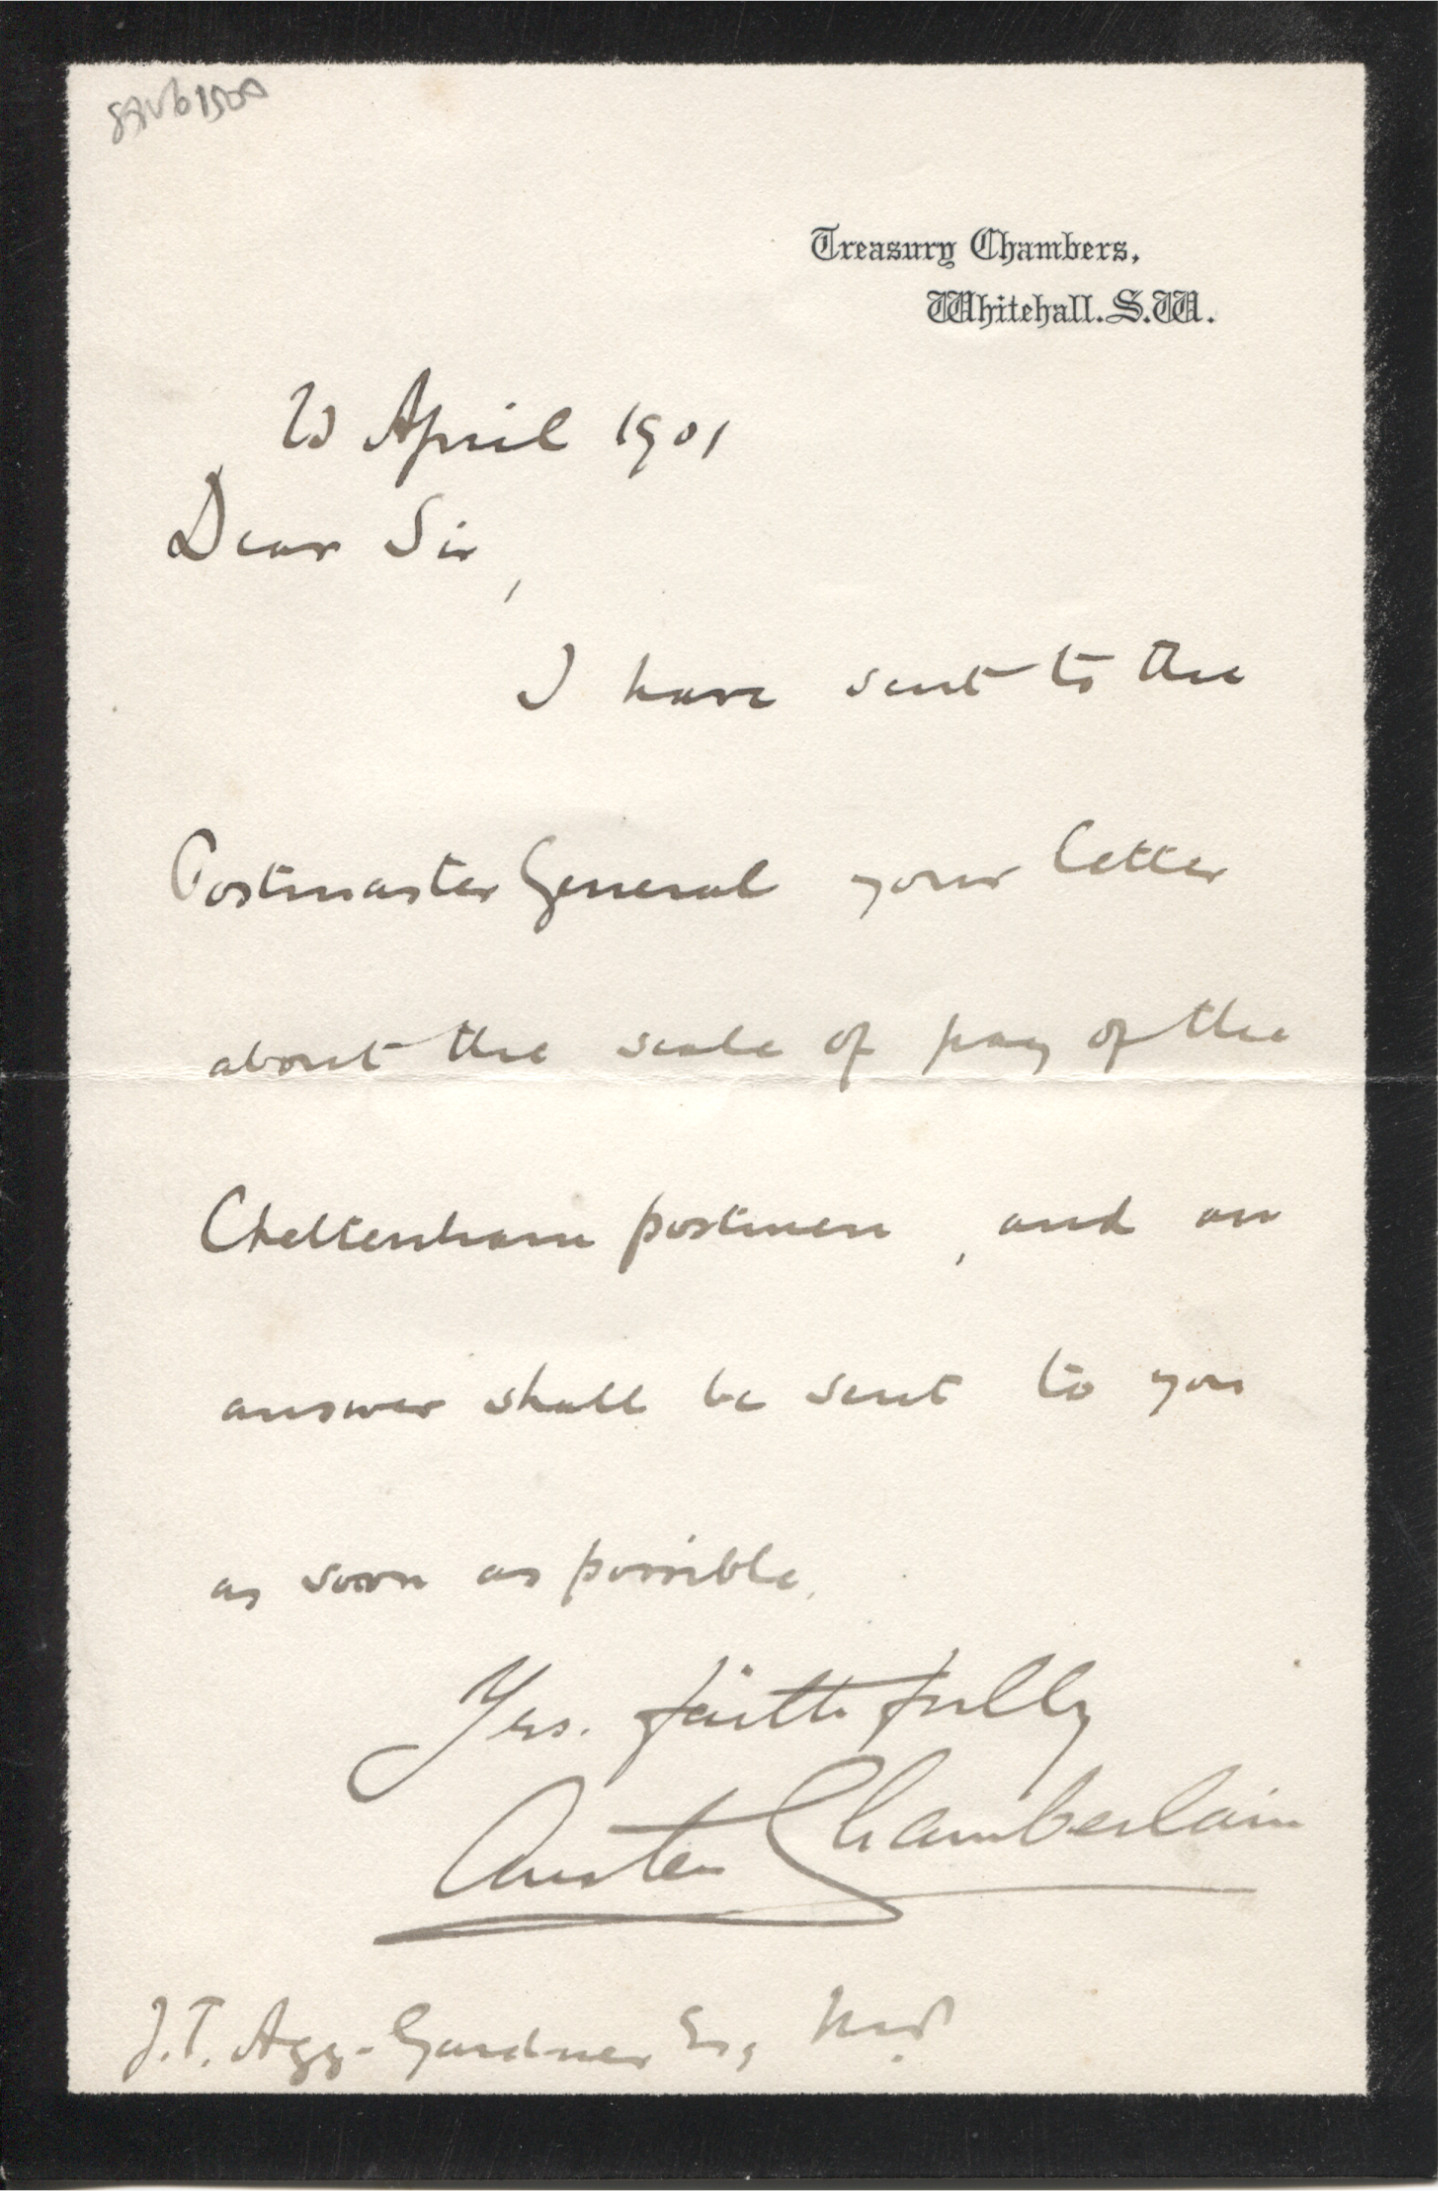 Treasury Chambers,
Whitehall. S.W.
April 1901
Dear Sir,
I have sent to the
Postmaster General your letter
about the scale of pay of the
Cheltenham postmen, and an
answer shall be sent to you
as soon as possible.
Yrs. faithfully
Austen Chamberlain
J.T. Agg-Gardner Esq M.P.